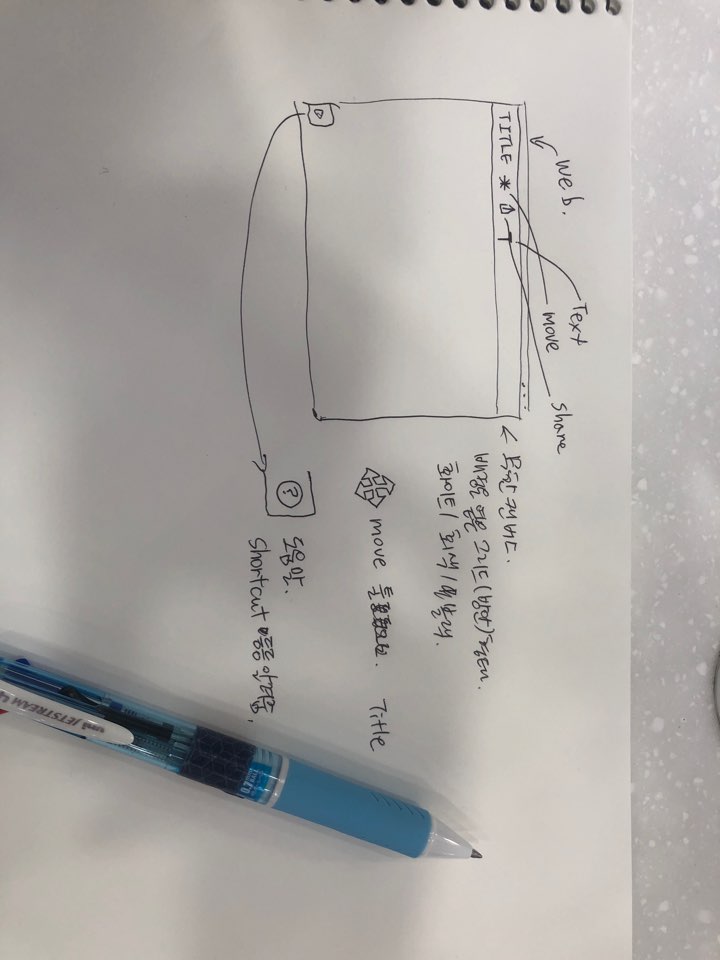 web.
Text
move
share
TITLE T
무한 캔버스.
배경은 옅은 그리드(방안)형태.
화이트/ 회색/ 블랙.
move 툴 Title
?
도움말.
shortcut 등등 알려줌.
0.7
uni JETSTREAM